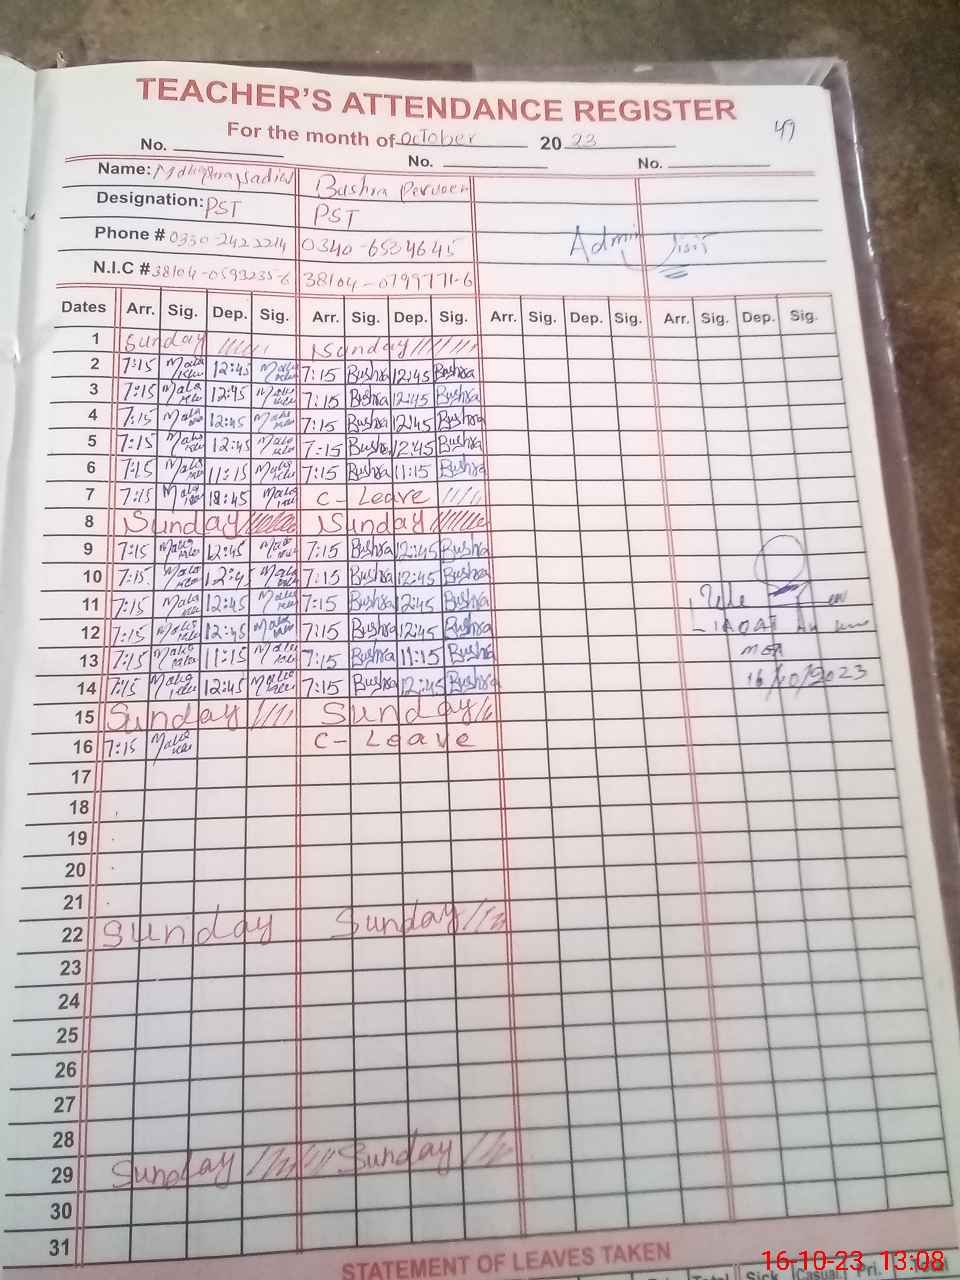 TEACHER'S ATTENDANCE REGISTER
47
For the month of october 2023
No. No. No.
Name: Bushra Perveen
Designation: PST PST
Phone # 0330-2422214 0340-6534645
N.I.C # 38104-0593235-6 38104-0799771-6
Admin visit
Dates Arr. Sig. Dep. Sig. Arr. Sig. Dep. Sig. Arr. Sig. Dep. Sig. Arr. Sig. Dep. Sig.
1 Sunday Sunday
2 7:15 12:45 7:15 Bushra 12:45 Bushra
3 7:15 12:45 7:15 Bushra 12:45 Bushra
4 7:15 12:45 7:15 Bushra 12:45 Bushra
5 7:15 12:45 7:15 Bushra 12:45 Bushra
6 7:15 11:15 7:15 Bushra 11:15 Bushra
7 7:15 12:45 C-Leave
8 Sunday Sunday
9 7:15 12:45 7:15 Bushra 12:45 Bushra
10 7:15 12:45 7:15 Bushra 12:45 Bushra
11 7:15 12:45 7:15 Bushra 12:45 Bushra
12 7:15 12:45 7:15 Bushra 12:45 Bushra
13 7:15 11:15 7:15 Bushra 11:15 Bushra
14 7:15 12:45 7:15 Bushra 12:45 Bushra
16/10/2023
15 Sunday Sunday
16 7:15 C-Leave
17
18
19
20
21
22 Sunday Sunday
23
24
25
26
27
28
29 Sunday Sunday
30
31
STATEMENT OF LEAVES TAKEN
Total Sick Casual Pri. Total
16-10-23 13:08